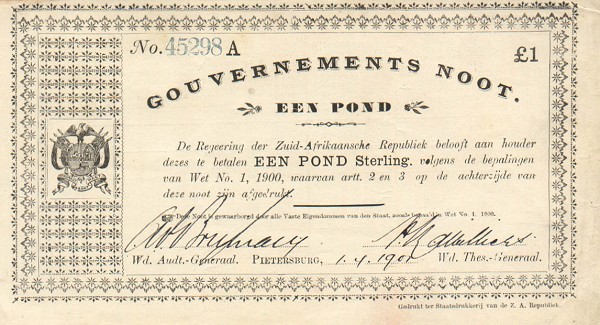 No. 45298 A
£1
GOUVERNEMENTS NOOT.
EEN POND
De Regeering der Zuid-Afrikaansche Republiek belooft aan houder
dezes te betalen EEN POND Sterling, volgens de bepalingen
van Wet No. 1, 1900, waarvan artt. 2 en 3 op de achterzijde van
deze noot zijn afgedrukt.
Deze Noot is gewaarborgd door alle Vaste Eigendommen van den Staat, zooals bepaald in Wet No. 1, 1900.
Wd. Audt.-Generaal. PIETERSBURG, 1.4.1901 Wd. Thes.-Generaal.
Gedrukt ter Staatsdrukkerij van de Z. A. Republiek.